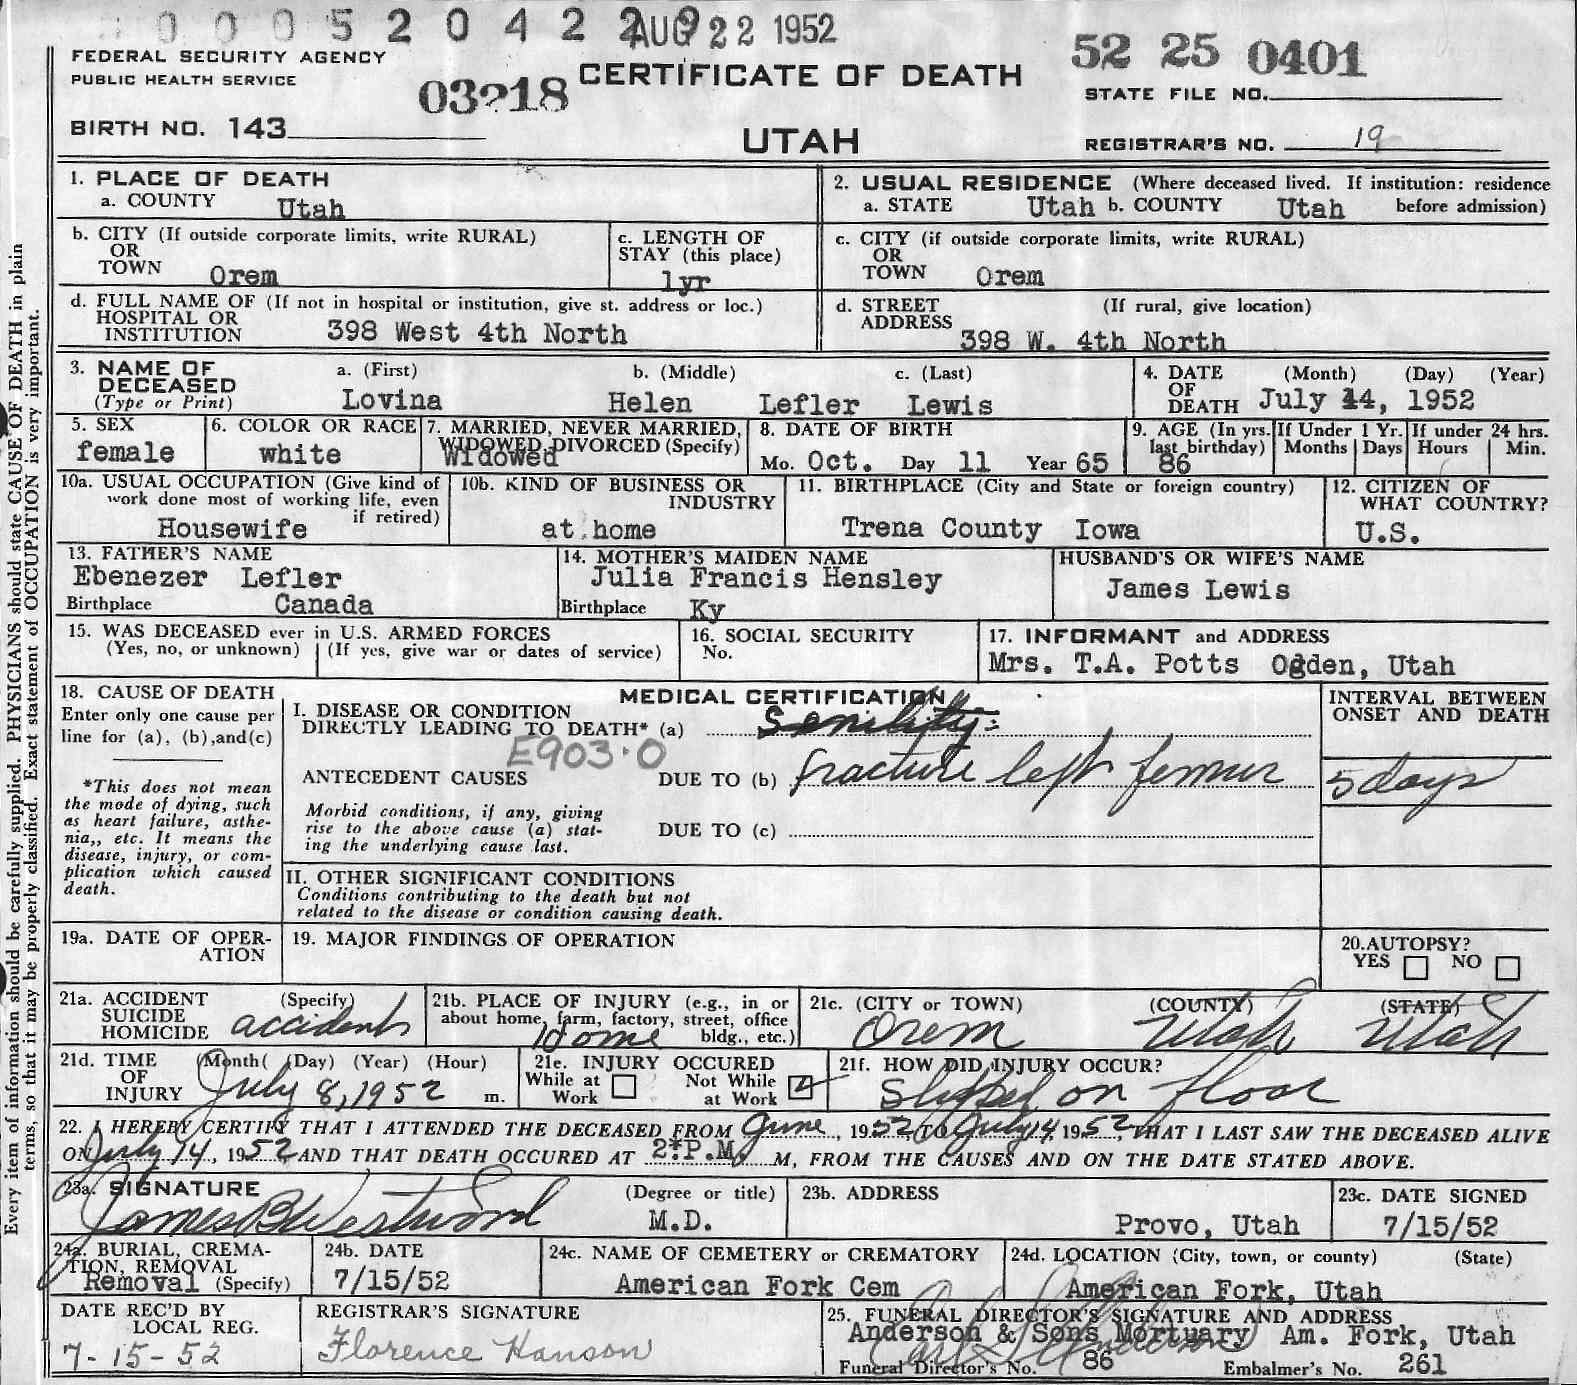 0 0 0 5 2 0 4 2 2 9
AUG 22 1952
FEDERAL SECURITY AGENCY
PUBLIC HEALTH SERVICE
03218
CERTIFICATE OF DEATH
52 25 0401
STATE FILE NO.
BIRTH NO. 143
UTAH
REGISTRAR'S NO. 19
1. PLACE OF DEATH
a. COUNTY Utah
2. USUAL RESIDENCE (Where deceased lived. If institution: residence before admission)
a. STATE Utah b. COUNTY Utah
b. CITY (If outside corporate limits, write RURAL)
OR
TOWN Orem
c. LENGTH OF
STAY (this place)
1yr
c. CITY (if outside corporate limits, write RURAL)
OR
TOWN Orem
d. FULL NAME OF (If not in hospital or institution, give st. address or loc.)
HOSPITAL OR
INSTITUTION 398 West 4th North
d. STREET (If rural, give location)
ADDRESS 398 W. 4th North
3. NAME OF a. (First) b. (Middle) c. (Last)
DECEASED
(Type or Print) Lovina Helen Lefler Lewis
4. DATE (Month) (Day) (Year)
OF
DEATH July 14, 1952
5. SEX
female
6. COLOR OR RACE
white
7. MARRIED, NEVER MARRIED,
WIDOWED, DIVORCED (Specify)
Widowed
8. DATE OF BIRTH
Mo. Oct. Day 11 Year 65
9. AGE (In yrs.
last birthday)
86
If Under 1 Yr.
Months Days
If under 24 hrs.
Hours Min.
10a. USUAL OCCUPATION (Give kind of
work done most of working life, even
if retired)
Housewife
10b. KIND OF BUSINESS OR
INDUSTRY
at home
11. BIRTHPLACE (City and State or foreign country)
Trena County Iowa
12. CITIZEN OF
WHAT COUNTRY?
U.S.
13. FATHER'S NAME
Ebenezer Lefler
Birthplace Canada
14. MOTHER'S MAIDEN NAME
Julia Francis Hensley
Birthplace Ky
HUSBAND'S OR WIFE'S NAME
James Lewis
15. WAS DECEASED ever in U.S. ARMED FORCES
(Yes, no, or unknown) (If yes, give war or dates of service)
16. SOCIAL SECURITY
No.
17. INFORMANT and ADDRESS
Mrs. T.A. Potts Ogden, Utah
18. CAUSE OF DEATH
Enter only one cause per
line for (a), (b),and(c)
*This does not mean
the mode of dying, such
as heart failure, asthe-
nia,, etc. It means the
disease, injury, or com-
plication which caused
death.
MEDICAL CERTIFICATION
I. DISEASE OR CONDITION
DIRECTLY LEADING TO DEATH* (a) Senility
E903.0
ANTECEDENT CAUSES DUE TO (b) fracture left femur
Morbid conditions, if any, giving
rise to the above cause (a) stat-
ing the underlying cause last.
DUE TO (c)
INTERVAL BETWEEN
ONSET AND DEATH
5 days
II. OTHER SIGNIFICANT CONDITIONS
Conditions contributing to the death but not
related to the disease or condition causing death.
19a. DATE OF OPER-
ATION
19. MAJOR FINDINGS OF OPERATION
20.AUTOPSY?
YES NO
21a. ACCIDENT (Specify)
SUICIDE
HOMICIDE accident
21b. PLACE OF INJURY (e.g., in or
about home, farm, factory, street, office
bldg., etc.)
Home
21c. (CITY or TOWN) (COUNTY) (STATE)
Orem Utah Utah
21d. TIME (Month( (Day) (Year) (Hour)
OF
INJURY July 8, 1952 m.
21e. INJURY OCCURED
While at Not While
Work at Work
21f. HOW DID INJURY OCCUR?
Slipped on floor
22. I HEREBY CERTIFY THAT I ATTENDED THE DECEASED FROM June, 1952, TO July 14, 1952, THAT I LAST SAW THE DECEASED ALIVE
ON July 14, 1952 AND THAT DEATH OCCURED AT 2:P.M. M, FROM THE CAUSES AND ON THE DATE STATED ABOVE.
23a. SIGNATURE (Degree or title)
James B Westwood M.D.
23b. ADDRESS
Provo, Utah
23c. DATE SIGNED
7/15/52
24a. BURIAL, CREMA-
TION, REMOVAL
Removal (Specify)
24b. DATE
7/15/52
24c. NAME OF CEMETERY or CREMATORY
American Fork Cem
24d. LOCATION (City, town, or county) (State)
American Fork, Utah
DATE REC'D BY
LOCAL REG.
7-15-52
REGISTRAR'S SIGNATURE
Florence Hanson
25. FUNERAL DIRECTOR'S SIGNATURE AND ADDRESS
Anderson & Sons Mortuary Am. Fork, Utah
Funeral Director's No. 86 Embalmer's No. 261
Every item of information should be carefully supplied. PHYSICIANS should state CAUSE OF DEATH in plain
terms, so that it may be properly classified. Exact statement of OCCUPATION is very important.